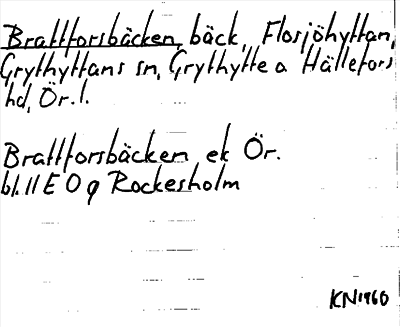 Brattforsbäcken, bäck, Flosjöhyttan,
Grythyttans sn, Grythytte o Hällefors
hd, Ör. l.
Brattforsbäcken ek Ör.
bl. 11 E O g Rockesholm
KN 1960